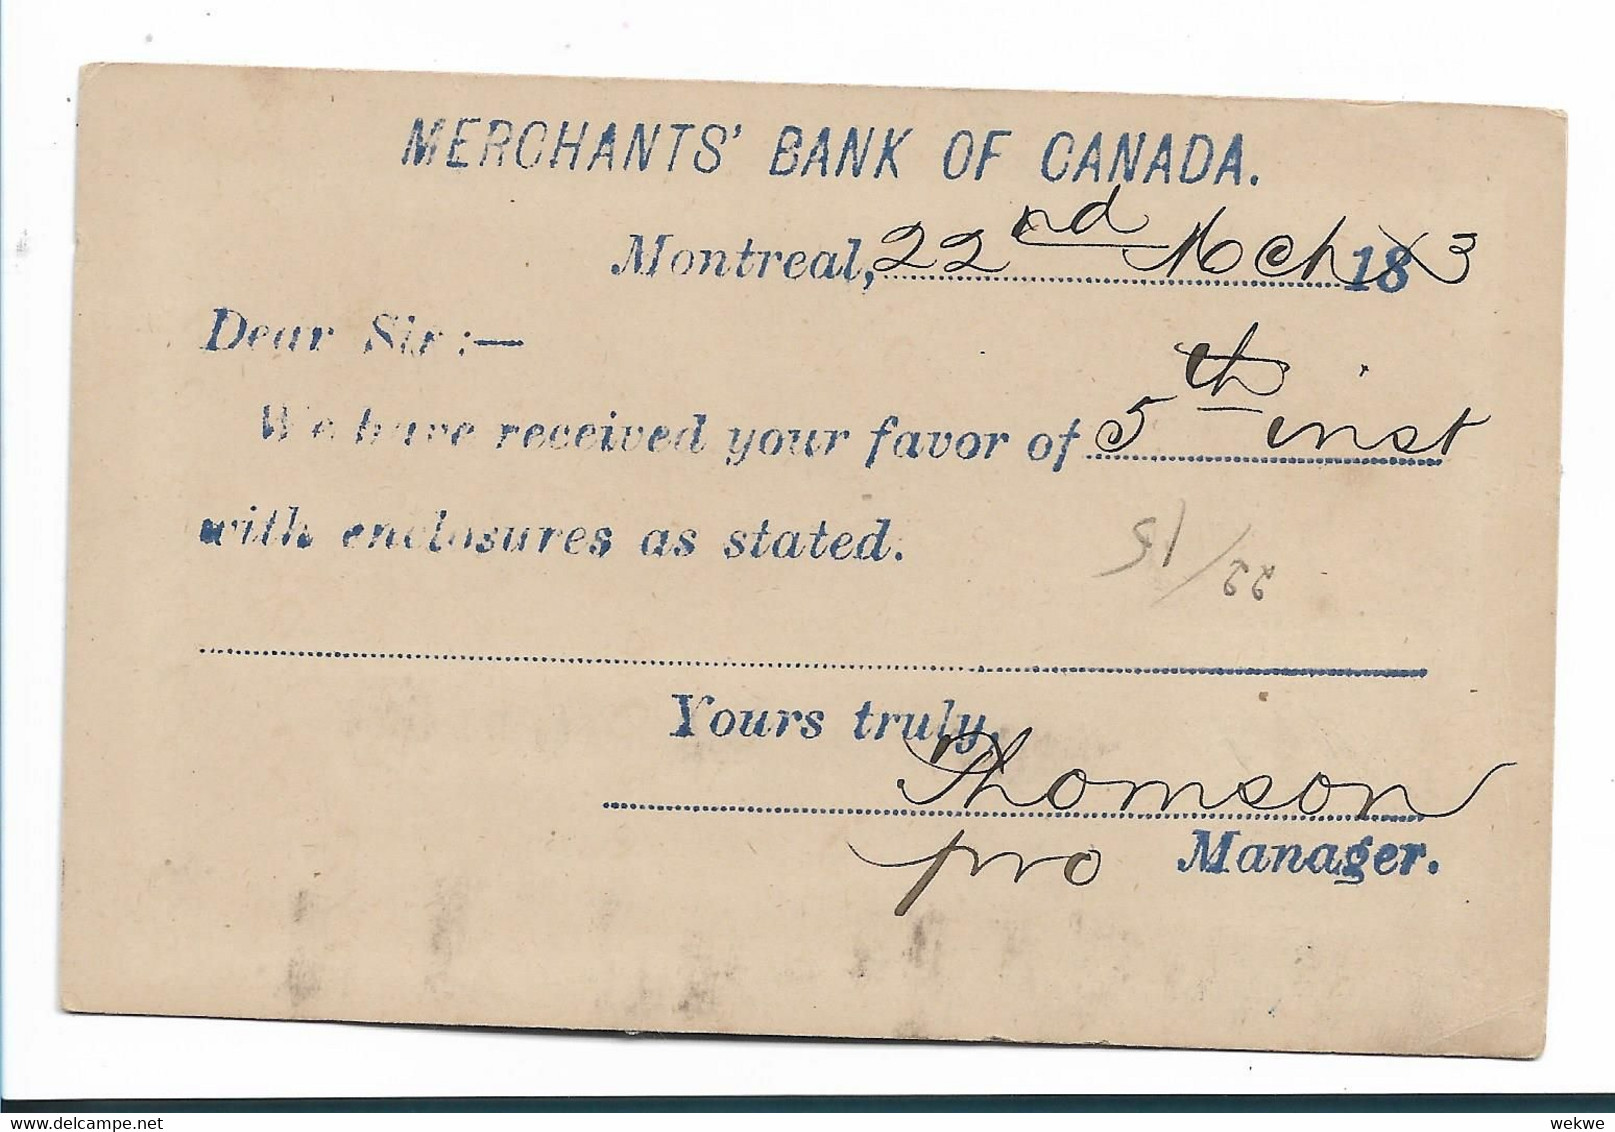 MERCHANTS' BANK OF CANADA.
Montreal, 22nd Mch 18 3
Dear Sir:—
We have received your favor of 5th inst
with enclosures as stated.
Yours truly,
Thomson
pro Manager.
wekwe